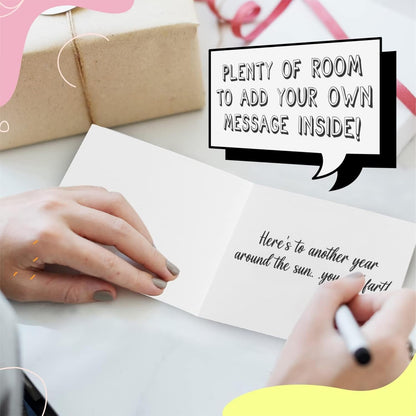 PLENTY OF ROOM
TO ADD YOUR OWN
MESSAGE INSIDE!
Here's to another year
around the sun.. .you fart!